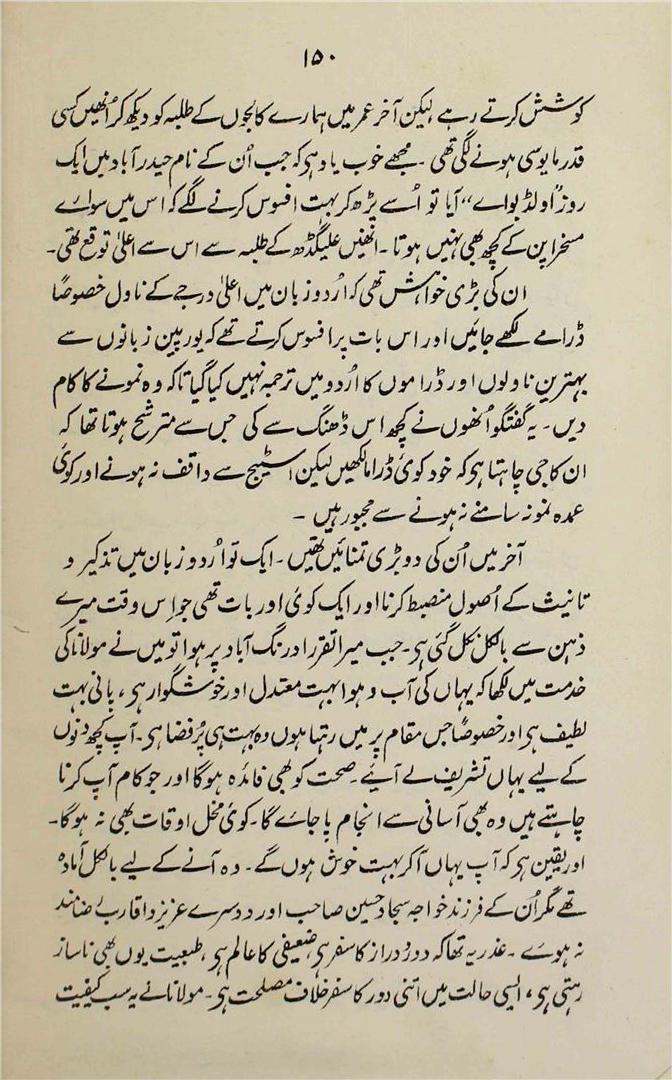 ۱۵۰
کوشش کرتے رہے لیکن آخر عمر میں ہمارے کالجوں کے طلبہ کو دیکھ کر اُنھیں کسی
قدر مایوسی ہونے لگی تھی۔ مجھے خوب یاد ہی کہ جب اُن کے نام حیدرآباد میں ایک
روز "اولڈ بوائے" آیا تو اُسے پڑھ کر بہت افسوس کرنے لگے کہ اس میں سوائے
مسخراپن کے کچھ بھی نہیں ہوتا۔ انھیں علیگڈھ کے طلبہ سے اس سے اعلیٰ توقع تھی۔
ان کی بڑی خواہش تھی کہ اُردو زبان میں اعلیٰ درجے کے ناول خصوصاً
ڈرامے لکھے جائیں اور اس بات پر افسوس کرتے تھے کہ یورپین زبانوں سے
بہترین ناولوں اور ڈراموں کا اُردو میں ترجمہ نہیں کیا گیا تاکہ وہ نمونے کا کام
دیں۔ یہ گفتگو اُنھوں نے کچھ اس ڈھنگ سے کی جس سے مترشح ہوتا تھا کہ
ان کا جی چاہتا ہی کہ خود کوئی ڈراما لکھیں لیکن اسٹیج سے واقف نہ ہونے اور کوئی
عمدہ نمونہ سامنے نہ ہونے سے مجبور ہیں۔
آخر میں اُن کی دو بڑی تمنائیں تھیں۔ ایک تو اُردو زبان میں تذکیر و
تانیث کے اُصول منضبط کرنا اور ایک کوئی اور بات تھی جو اِس وقت میرے
ذہن سے بالکل نکل گئی ہی۔ جب میرا تقرر اورنگ آباد پر ہوا تو میں نے مولانا کی
خدمت میں لکھا کہ یہاں کی آب و ہوا بہت معتدل اور خوشگوار ہی، پانی بہت
لطیف ہی اور خصوصاً جس مقام پر میں رہتا ہوں وہ بہت ہی پُرفضا ہی۔ آپ کچھ دنوں
کے لیے یہاں تشریف لے آئیے۔ صحت کو بھی فائدہ ہوگا اور جو کام آپ کرنا
چاہتے ہیں وہ بھی آسانی سے انجام پا جائے گا۔ کوئی مخل اوقات بھی نہ ہوگا۔
اور یقین ہی کہ آپ یہاں آکر بہت خوش ہوں گے۔ وہ آنے کے لیے بالکل آمادہ
تھے مگر اُن کے فرزند خواجہ سجاد حسین صاحب اور دوسرے عزیز و اقارب رضامند
نہ ہوئے۔ عذر یہ تھا کہ دور دراز کا سفر ہی، ضعیفی کا عالم ہی، طبیعت یوں بھی ناساز
رہتی ہی، ایسی حالت میں اتنی دور کا سفر خلاف مصلحت ہی۔ مولانا نے یہ سب کیفیت